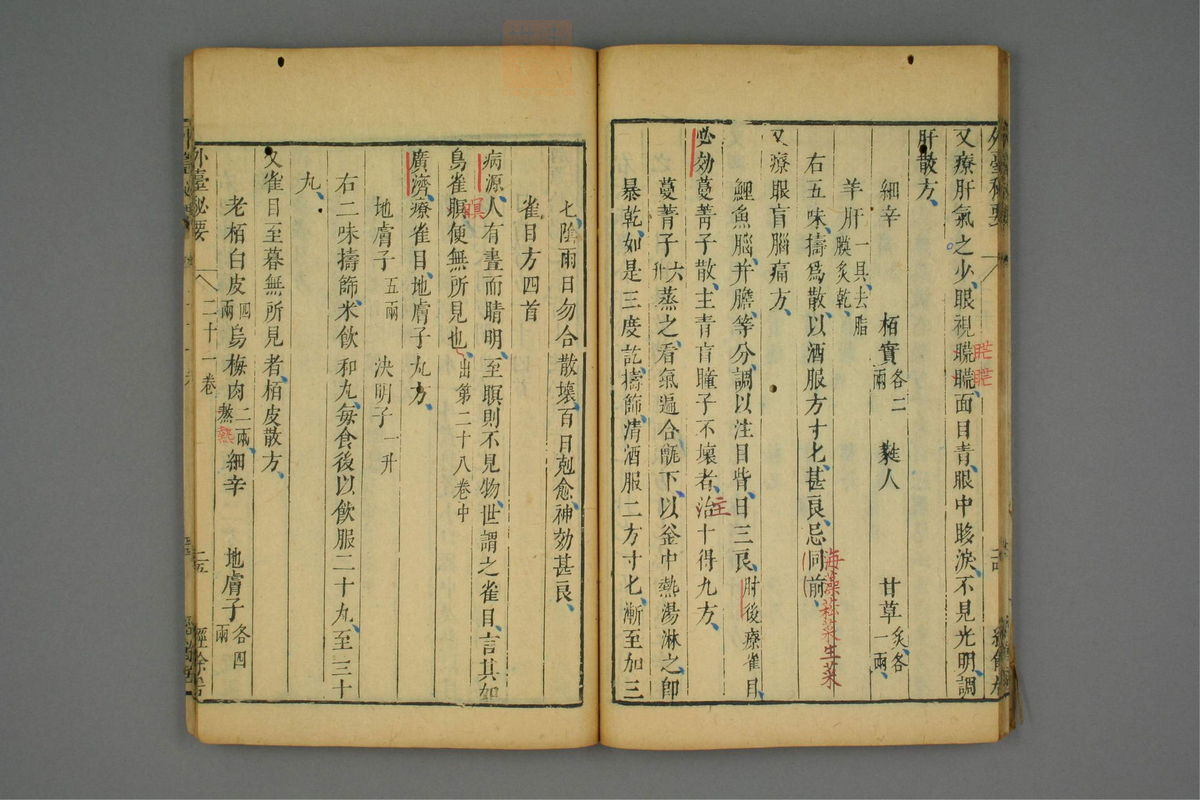 外臺秘要
又療肝氣之少、眼視䀮䀮、面目青、眼中眵淚、不見光明、調
肝散方、
細辛　栢實各二兩　蕤人　甘草炙各一兩、
羊肝一具去脂膜炙乾、
右五味、擣爲散、以酒服方寸匕、甚良、忌同前、
海藻菘菜生菜
又療眼盲腦痛方、
鯉魚腦、并膽、等分、調以注目眥、日三良、肘後療雀目、
必効蔓菁子散、主青盲瞳子不壞者、治十得九方、
主
蔓菁子六升蒸之、看氣遍合甑下、以釜中熱湯淋之、即
暴乾、如是三度訖、擣篩、清酒服二方寸匕、漸至加三
七、陰雨日勿合散壞、百日剋愈、神効甚良、
雀目方四首
病源、人有晝而睛明、至瞑則不見物、世謂之雀目、言其如
鳥雀瞑便無所見也、出第二十八卷中
廣濟、療雀目、地膚子丸方、
地膚子五兩　決明子一升
右二味擣篩、米飲和丸、每食後以飲服二十丸、至三十
丸、
又雀目至暮無所見者、栢皮散方、
老栢白皮四兩　烏梅肉二兩、熬　細辛　地膚子各四兩
熱
外臺秘要　二十一卷　二五